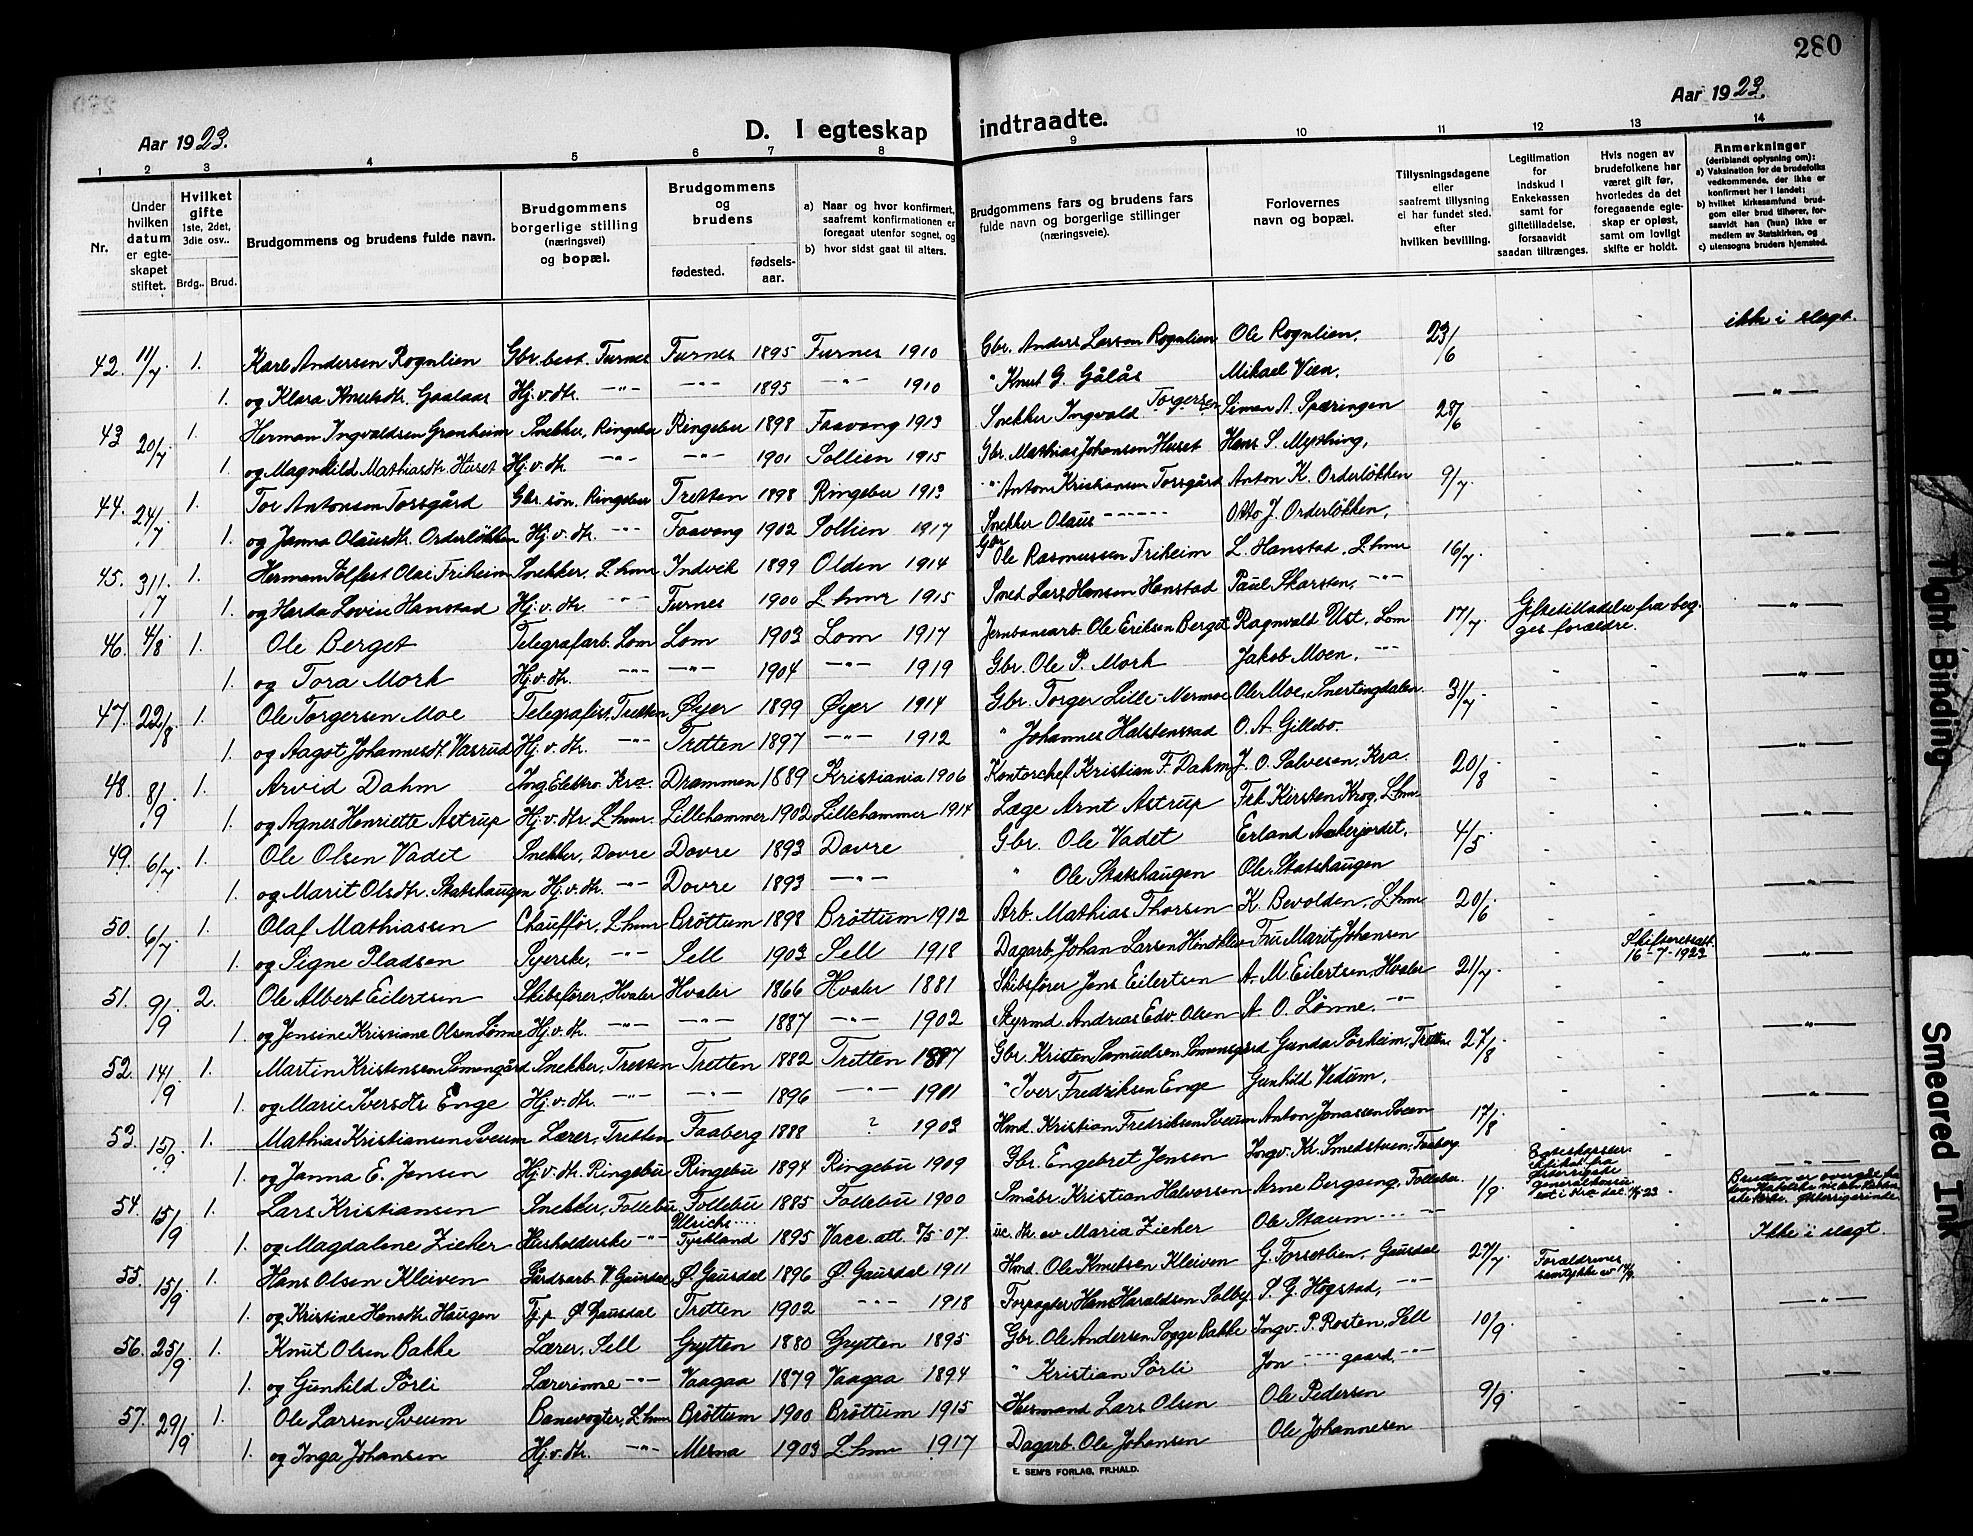 280
Aar 1923.
D. I egteskap indtraadte.
Aar 1923.
1 2 3 4 5 6 7 8 9 10 11 12 13 14
Nr.
Under hvilken datum er egte-skapet stiftet.
Hvilket gifte 1ste, 2det, 3die osv..
Brdg.. Brud.
Brudgommens og brudens fulde navn.
Brudgommens borgerlige stilling (næringsvei) og bopæl.
Brudgommens og brudens
fødested.
fødsels-aar.
a) Naar og hvor konfirmert, saafremt konfirmationen er foregaat utenfor sognet, og
b) hvor sidst gaat til alters.
Brudgommens fars og brudens fars fulde navn og borgerlige stillinger (næringsveie).
Forlovernes navn og bopæl.
Tillysningsdagene eller saafremt tillysning ei har fundet sted. efter hvilken bevilling.
Legitimation for indskud i Enkekassen samt for giftetilladelse, forsaavidt saadan tiltrænges.
Hvis nogen av brudefolkene har været gift før, hvorledes da det foregaaende egte-skap er opløst, samt om lovligt skifte er holdt.
Anmerkninger (deriblandt oplysning om):
a) Vaksination for de brudefolks vedkommende, der ikke er konfirmert her i landet;
b) hvilket kirkesamfund brud-gom eller brud tilhører, for-saavidt han (hun) ikke er medlem av Statskirken, og
c) utensogns bruders hjemsted.
42. 11/7 1. Karl Andersen Rognlien Gbr. best. Furnes Furnes 1895 Furnes 1910 Gbr. Anders Larsen Rognlien Ole Rognlien. 23/6 - - ikke i slegt.
1. og Klara Knutsdtr. Gaalaas Hj.v.dtr. —"— —"— 1895 —"— 1910 " Knut G. Gålås Mikael Vien.
43 20/7 1. Herman Ingvaldsen Granheim Snekker, Ringebu Ringebu 1898 Faavang 1913 Snekker Ingvald Torgersen Simen A. Spæringen 28/6 —"—
1 og Magnhild Mathiasdtr. Huset Hj.v.dtr. —"— —"— 1901 Sollien 1915 Gbr. Mathias Johansen Huset Hans S. Mytting,
44. 24/7 1. Tor Antonsen Torsgård Gbr. søn, Ringebu Tretten 1898 Ringebu 1913 " Anton Kristiansen Torsgård Anton K. Orderløkken 9/7 —"—
1. og Janna Olausdtr. Orderløkken Hj.v.dtr. —"— Faavang 1902 Sollien 1917 Snekker Olaus ------ Otto J. Orderløkken,
45. 31/7 1. Herman Solfest Olai Friheim Snekker, L.hmr Indvik 1899 Olden 1914 Gbr Ole Rasmussen Friheim L. Hanstad, L.hmr 16/7 —"—
1. og Herda Lovise Hanstad Hj.v.dtr. —"— Furnes 1900 L.hmr 1915 Smed Lars Hansen Hanstad Paul Skarsten, —"—
46. 4/8 1. Ole Berget Telegrafarb. Lom Lom 1903 Lom 1917 Jernbanearb. Ole Eriksen Berget Ragnvald Ust, Lom 17/7 Giftetilladelse fra beg-ges forældre. —"—
1. og Tora Mork Hj.v.dtr. —"— —"— 1904 —"— 1919 Gbr. Ole P. Mork Jakob Moen. —"—
47. 22/8 1. Ole Torgersen Moe Telegrafist, Tretten Øyer 1899 Øyer 1914 Gbr. Torger Lille-Nermoe Ole Moe, Snertingdalen. 31/7 —"—
1. og Aagot Johannesdt. Vasrud Hj.v.dtr. —"— Tretten 1897 —"— 1912 " Johannes Halstenstad O. A. Gillebo.
48. 8/9 1. Arvid Dahm Ing. Elektro. Kra. Drammen 1889 Kristiania 1906 Kontorchef Kristian F. Dahm J. O. Salvesen, Kra. 20/8 —"—
1. og Agnes Henriette Astrup Hj.v.dtr. L.hmr. Lillehammer 1902 Lillehammer 1914 Læge Arnt Astrup Frk Kirsten Krog, L.hmr
49. 6/7 1. Ole Olsen Vadet Snekker, Dovre Dovre 1893 Dovre Gbr. Ole Vadet Erland Aakerjordet. 4/5 —"—
1. og Marit Olsdtr. Statshaugen Hj.v.dtr. —"— Dovre 1893 —"— " Ole Statshaugen Ole Statshaugen
50. 6/7 1. Olaf Mathiassen Chauffør, L.hmr Brøttum 1898 Brøttum 1912 Arb. Mathias Thorsen K. Bevolden, L.hmr 20/6 —"—
1. og Signe Pladsen Syerske, —"— Sell 1903 Sell 1918 Dagarb. Johan Larsen Fru Marit Johansen
51. 9/9 2. Ole Albert Eilertsen Skibsfører, Hvaler Hvaler 1866 Hvaler 1881 Skibsfører Jens Eilertsen A. M. Eilertsen, Hvaler 21/7 Skifteretsatt. 16-7-1923 —"—
1. og Jensine Kristiane Olsen Lønne Hj.v.dtr. —"— —"— 1887 —"— 1902 Styrmd. Andreas Edv. Olsen A. O. Lønne. —"—
52. 14/9 1. Martin Kristensen Somengård Snekker, Tretten Tretten 1882 Tretten 1897 Gbr. Kristen Samuelsen Somengård Gunda Sørheim, Tretten 27/8 —"—
1. og Marie Iversdtr. Enge Hj.v.dtr. —"— —"— 1896 —"— 1901 " Iver Fredriksen Enge Gunhild Vedum.
53. 15/9 1. Mathias Kristiansen Sveum Lærer, Tretten Faaberg 1888 ? 1903 Hmd. Kristian Fredriksen Sveum Anton Jonassen Sveen 17/8 —"—
1. og Janna E. Jensen Hj.v.dtr. Ringebu Ringebu 1894 Ringebu 1909 Gbr. Engebret Jensen Ingv. Kr. Smedstuen, Faaberg
54. 15/9 1. Lars Kristiansen Snekker, Follebu Follebu 1885 Follebu 1900 Småbr. Kristian Halvorsen Arne Bergseng, Follebu 1/9 generalkonsu-lat i Kra dat. Bruden er
1. og Magdalene Zieher Husholderske —"— Tyskland 1895 Vacc. att. 8/5-07. u.e. dtr. av Maria Zieher Ole Staum
55. 15/9 1. Hans Olsen Kleiven Gårdsarb. V. Gausdal Ø. Gausdal 1896 Ø. Gausdal 1911 Hmd. Ole Knutsen Kleiven G. Forsetlien, Gausdal 27/7 Forældrenes samtykke av 14/9. Ikke i slegt.
1. og Kristine Hansdtr. Haugen Tj.p. Ø. Gausdal Tretten 1902 —"— 1918 Forpagter Hans Haraldsen Solby S. G. Høgstad, —"—
56. 25/9 1. Knut Olsen Bakke Lærer, Sell Grytten 1880 Grytten 1895 Gbr. Ole Andersen Sogge Bakke Ingv. P. Rosten, Sell 10/9 —"—
1. og Gunhild Sørli Lærerinne —"— Vaagaa 1879 Vaagaa 1894 " Kristian Sørli Jon ---- gaard, —"—
57. 29/9 1. Ole Larsen Sveum Banevogter, L.hmr Brøttum 1900 Brøttum 1915 Husmand Lars Olsen Ole Pedersen 9/9 —"—
1. og Inga Johansen Hj.v.dtr. —"— Mesna 1903 L.hmr 1917 Dagarb. Ole Johansen Ole Johannesen
E. SEM'S FORLAG, FR.HALD.
Tight Binding
Smeared Ink